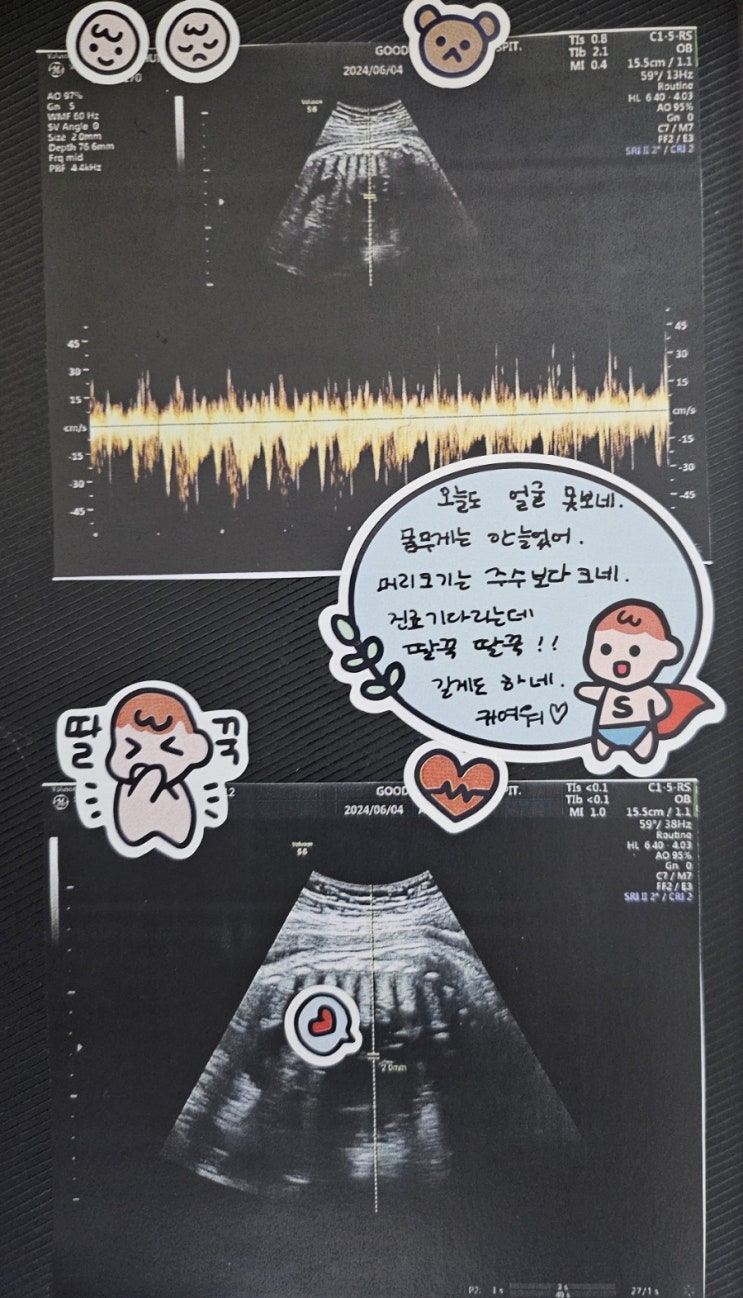 GOOD
SPIT.
2024/06/04
TIs 0.8
TIb 2.1
MI 0.4
C1-5-RS
OB
15.5cm / 1.1
59°/ 13Hz
Routine
HL 6.40 - 4.03
AO 95%
Gn 0
C7 / M7
FF2 / E3
SRI II 2* / CRI 2
AO 97%
Gn 5
WMF 60 Hz
SV Angle 0
Size 2.0mm
Depth 76.6mm
Frq mid
PRF 4.4kHz
Voluson
S6
45
30
15
cm/s
-15
-30
-45
45
30
15
cm/s
-15
-30
-45
오늘도 얼굴 못보네.
몸무게는 안늘었어.
머리크기는 주수보다 크네.
진료기다리는데
딸꾹 딸꾹 !!
길게도 하네.
귀여워♡
S
딸 꾹
GOOD
PIT.
2024/06/04
TIs <0.1
TIb <0.1
MI 1.0
C1-5-RS
OB
15.5cm / 1.1
59°/ 38Hz
Routine
HL 6.40 - 4.03
AO 95%
Gn 0
C7 / M7
FF2 / E3
SRI II 2* / CRI 2
Voluson
S6
2.0mm
P2: 1 s
3 s
49 s
27/1 s